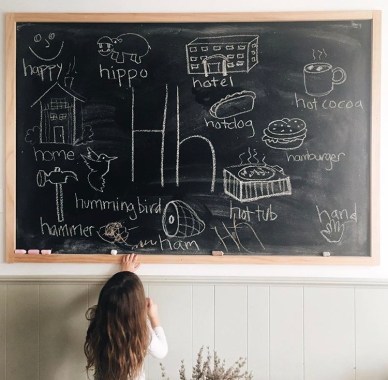 happy
hippo
hotel
hot cocoa
hotdog
Hh
home
hamburger
hummingbird
hot tub
hammer
ham
Hh
hand